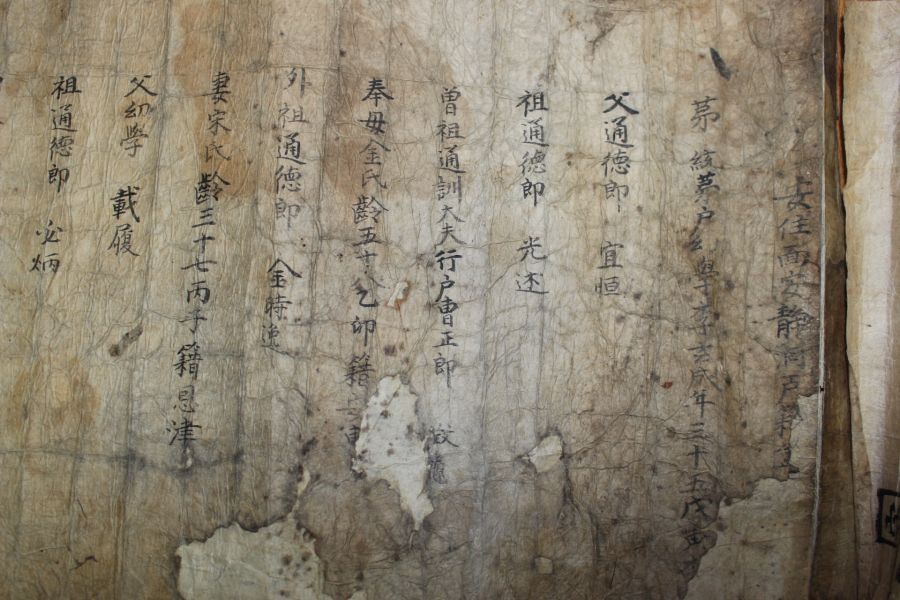 住面 静洞戶籍
茅 統茅戶幼學李 年三十五戊寅
父通德郎 宜恒
祖通德郎 光述
曾祖通訓大夫行戶曹正郎
奉母金氏齡五十八乙卯籍
外祖通德郎 金時進
妻宋氏齡三十七丙子籍恩津
父幼學 載履
祖通德郎 必炳